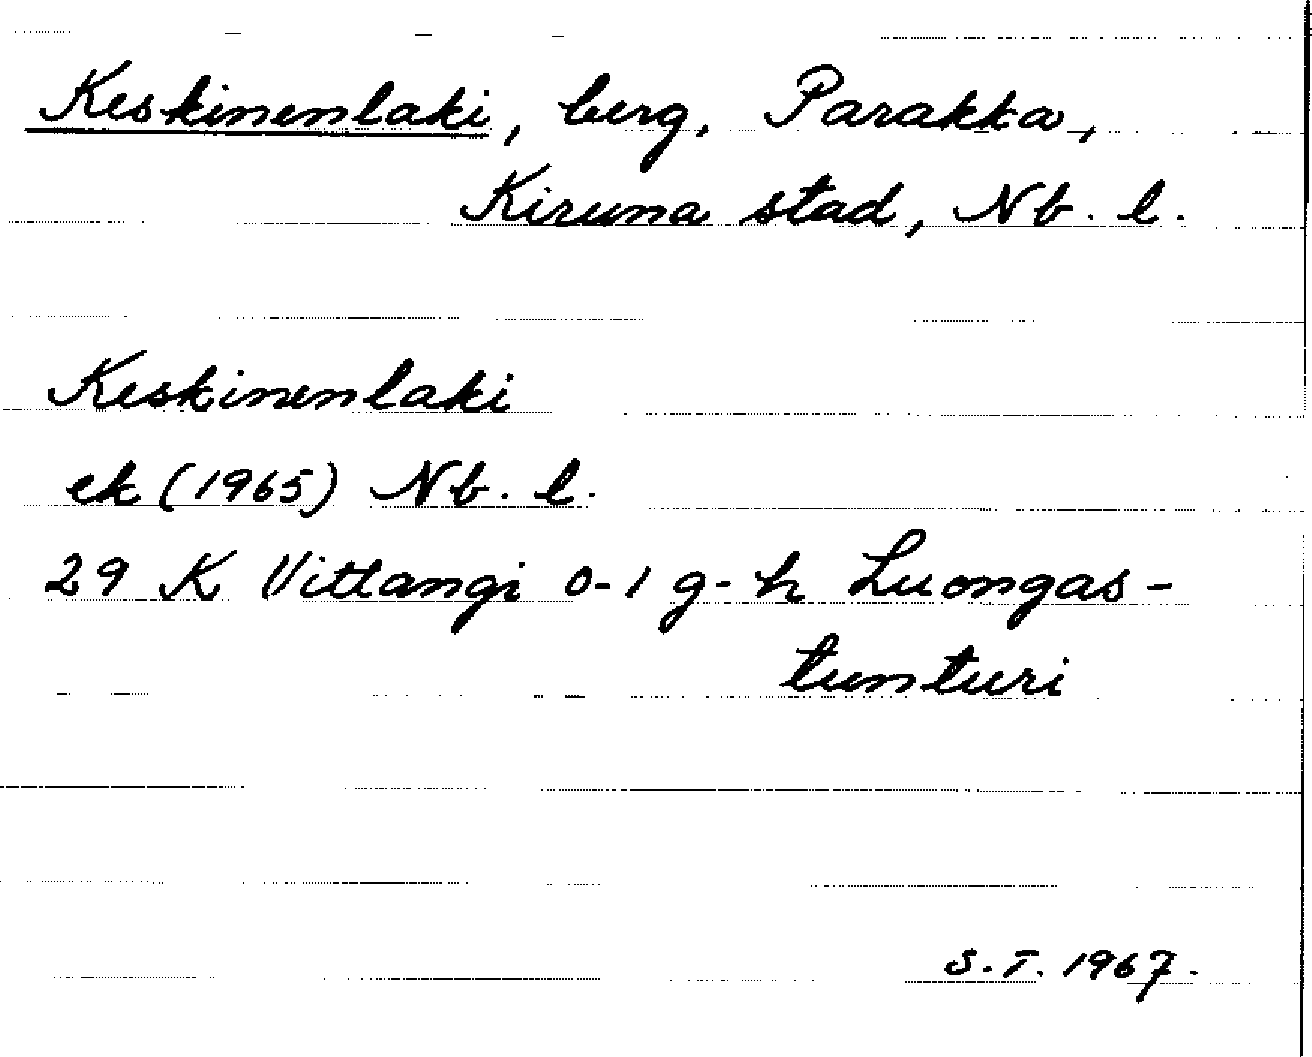 Keskinenlaki, berg, Parakka,
Kiruna stad, Nb. l.
Keskinenlaki
ek (1965) Nb. l.
29 K Vittangi 0-1 g-h Luongas-
tunturi
S.T. 1967.